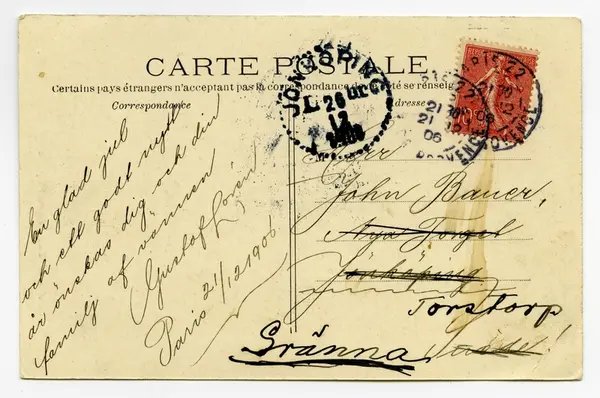 CARTE POSTALE
Certains pays étrangers n'acceptant pas la correspondance de ce côté se renseigner
Correspondance
Adresse
En glad jul
och ett godt nytt
år önskas dig och din
familj af vännen
Gustaf Lorén
Paris 21/12 1906
Herr
John Bauer,
Nya Torget
Jönköping
Torstorp
Gränna
JÖNKÖPING
L
26 DEC
12
1906
PARIS 22
21 12
06
PROVENCE